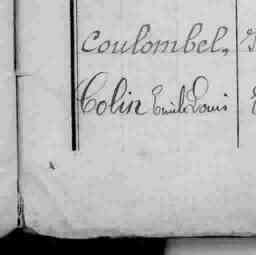 Coulombel,
Colin Emile Louis